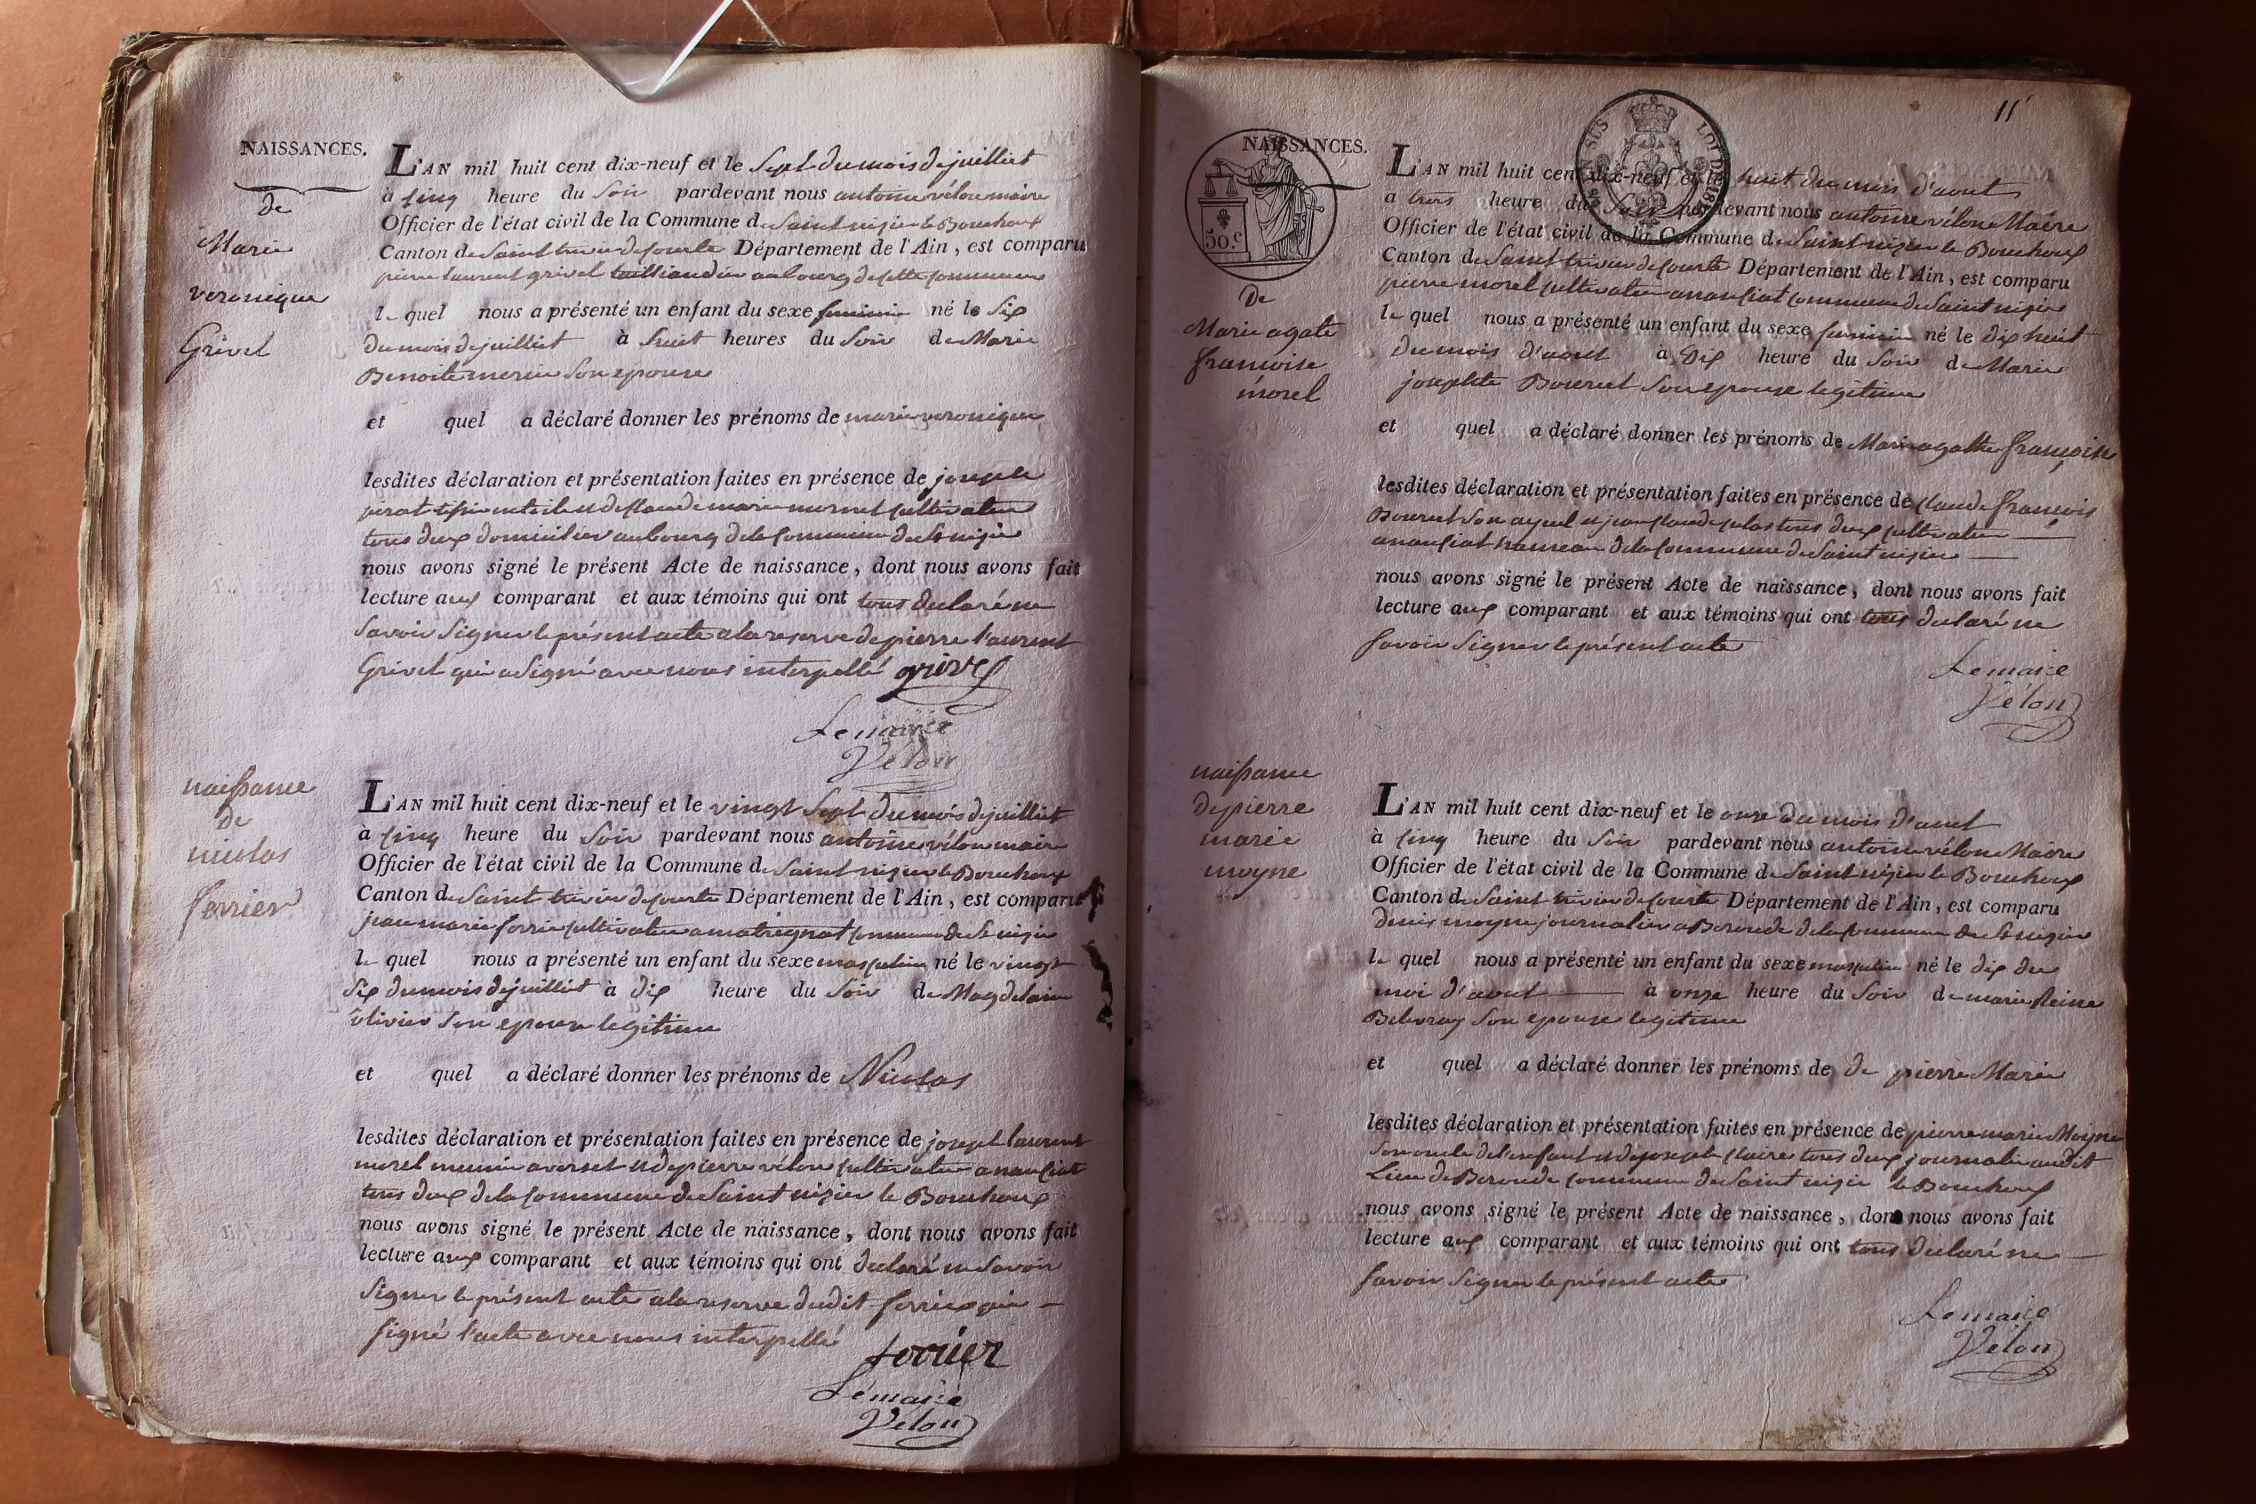 NAISSANCES.
de
Marie
veronique
Grivel
L'AN mil huit cent dix-neuf et le Sept du mois de juilliet
à cinq heure du Soir pardevant nous antoine vélon maire
Officier de l'état civil de la Commune de Saint nizier le Bouchoux
Canton de Saint trivier de Courte Département de l'Ain, est comparu
pierre laurent grivel taillandier au bourg de cette commune
le quel nous a présenté un enfant du sexe feminin né le Six
du mois de juilliet à huit heures du Soir de Marie
Benoite Son epouse
et quel a déclaré donner les prénoms de marie veronique
lesdites déclaration et présentation faites en présence de joseph
et de Claude marie cultivateur
tous deux domiciliés au bourg de la Commune de St nizier
nous avons signé le présent Acte de naissance, dont nous avons fait
lecture aux comparant et aux témoins qui ont tous declaré ne
Savoir Signer le présent acte a la reserve de pierre laurent
Grivel qui a Signé avec nous interpellé grivel
Le maire
Vélon
naissance
de
nicolas
ferrier
L'AN mil huit cent dix-neuf et le vingt Sept du mois de juilliet
à cinq heure du Soir pardevant nous antoine vélon maire
Officier de l'état civil de la Commune de Saint nizier le Bouchoux
Canton de Saint trivier de Courte Département de l'Ain, est comparu
jean marie ferrier cultivateur a matrignat commune de St nizier
le quel nous a présenté un enfant du sexe masculin né le vingt
Six du mois de juilliet à dix heure du Soir de Magdelaine
olivier Son epouse legitime
et quel a déclaré donner les prénoms de Nicolas
lesdites déclaration et présentation faites en présence de joseph laurent
morel meunier a et de pierre vélon cultivateur a nanciat
tous deux de la Commune de Saint nizier le Bouchoux
nous avons signé le présent Acte de naissance, dont nous avons fait
lecture aux comparant et aux témoins qui ont declaré ne Savoir
Signer le présent acte a la reserve dudit ferrier qui
Signé l'acte avec nous interpellé
ferrier
Le maire
Vélon
11
NAISSANCES.
50.c
LOI DE 18
de
Marie agate
françoise
morel
L'AN mil huit cent dix-neuf et le huit du mois d'aout
a trois heure du Soir pardevant nous antoine vélon Maire
Officier de l'état civil de la Commune de Saint nizier le Bouchoux
Canton de Saint trivier de Courte Département de l'Ain, est comparu
pierre morel cultivateur a nanciat commune de Saint nizier
le quel nous a présenté un enfant du sexe feminin né le dix huit
du mois d'aout à Dix heure du Soir de Marie
josephte Bourcet Son epouse legitime
et quel a déclaré donner les prénoms de Marie agathe françoise
lesdites déclaration et présentation faites en présence de Claude françois
Bourcet Son ayeul et jean Claude tous deux cultivateur
a nanciat hameau de la Commune de Saint nizier
nous avons signé le présent Acte de naissance, dont nous avons fait
lecture aux comparant et aux témoins qui ont tous declaré ne
Savoir Signer le présent acte
Le maire
Vélon
naissance
de pierre
marie
moyne
L'AN mil huit cent dix-neuf et le onze du mois d'aout
à cinq heure du Soir pardevant nous antoine vélon Maire
Officier de l'état civil de la Commune de Saint nizier le Bouchoux
Canton de Saint trivier de Courte Département de l'Ain, est comparu
denis moyne journalier a Beroude de la Commune de St nizier
le quel nous a présenté un enfant du sexe masculin né le dix du
moi d'aout à onze heure du Soir de marie Reine
Son epouse legitime
et quel a déclaré donner les prénoms de de pierre Marie
lesdites déclaration et présentation faites en présence de pierre marie Moyne
Son oncle de l'enfant et de joseph claire tous deux journalier audit
Lieu de Beroude commune de Saint nizier le Bouchoux
nous avons signé le présent Acte de naissance, dont nous avons fait
lecture aux comparant et aux témoins qui ont tous declaré ne
Savoir Signer le présent acte
Le maire
Vélon